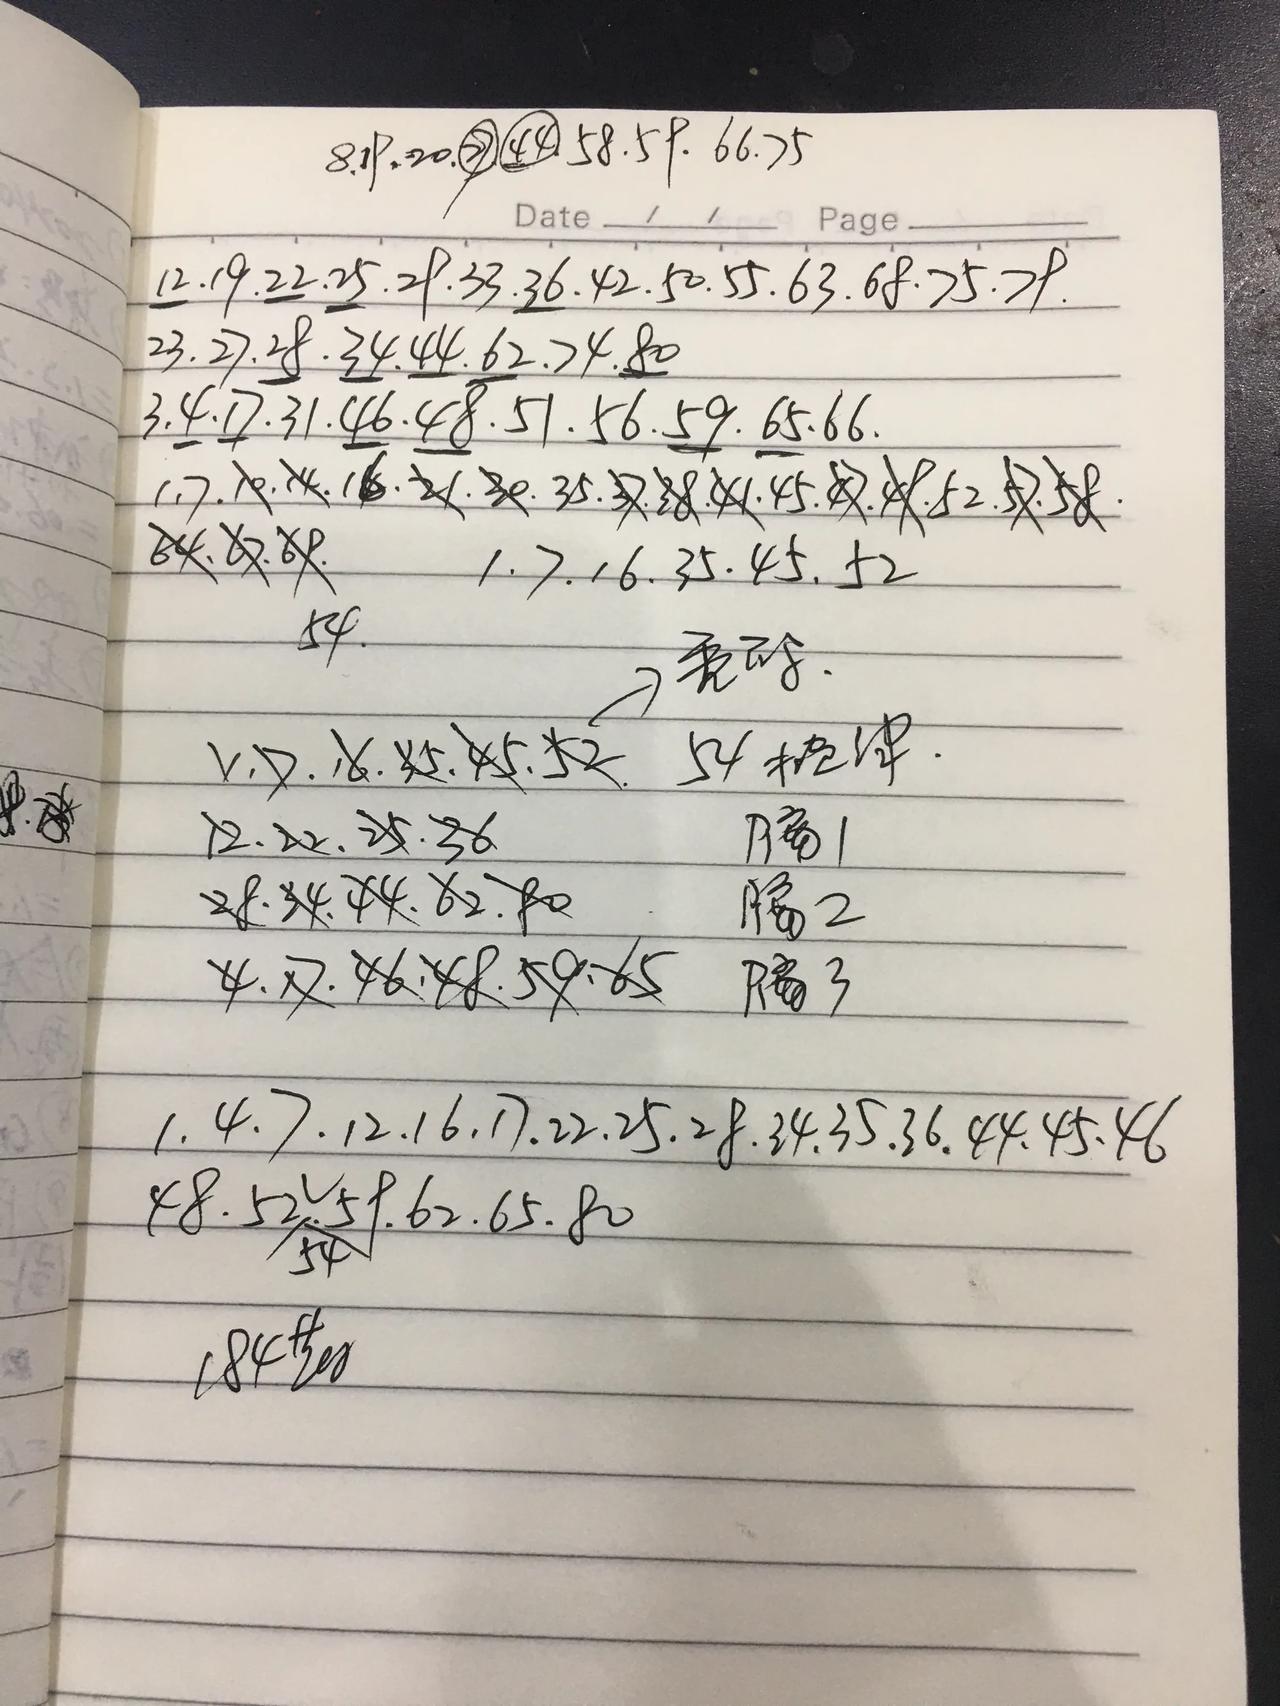 8.19.20.㉗.㊹.58.59.66.75
Date / / Page
12.19.22.25.29.33.36.42.50.55.63.68.75.79.
23.27.28.34.44.62.74.80
3.4.17.31.46.48.51.56.59.65.66.
1.7.10.14.16.21.30.35.37.38.41.45.47.49.52.57.58.
64.67.69. 1.7.16.35.45.52
54.
重码.
1.7.16.35.45.52. 54 规律.
12.22.25.36 隔1
28.34.44.62.80 隔2
4.17.46.48.59.65 隔3
1.4.7.12.16.17.22.25.28.34.35.36.44.45.46
48.52.59.62.65.80
54
184